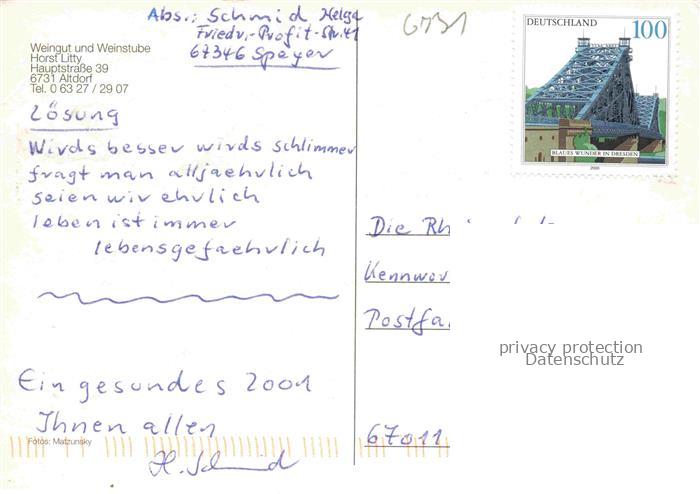 Abs.: Schmid Helga
Friedr.-Profit-Str. 41
67346 Speyer
6731
DEUTSCHLAND 100
BLAUES WUNDER IN DRESDEN
2000
Weingut und Weinstube
Horst Litty
Hauptstraße 39
6731 Altdorf
Tel. 0 63 27 / 29 07
Lösung
Wirds besser wirds schlimmer
fragt man alljaehrlich
seien wir ehrlich
leben ist immer
lebensgefaehrlich
Ein gesundes 2001
Ihnen allen
Fotos: Matzunsky
H. Schmid
Die Rh
Kennwor
Postfa
privacy protection
Datenschutz
67011